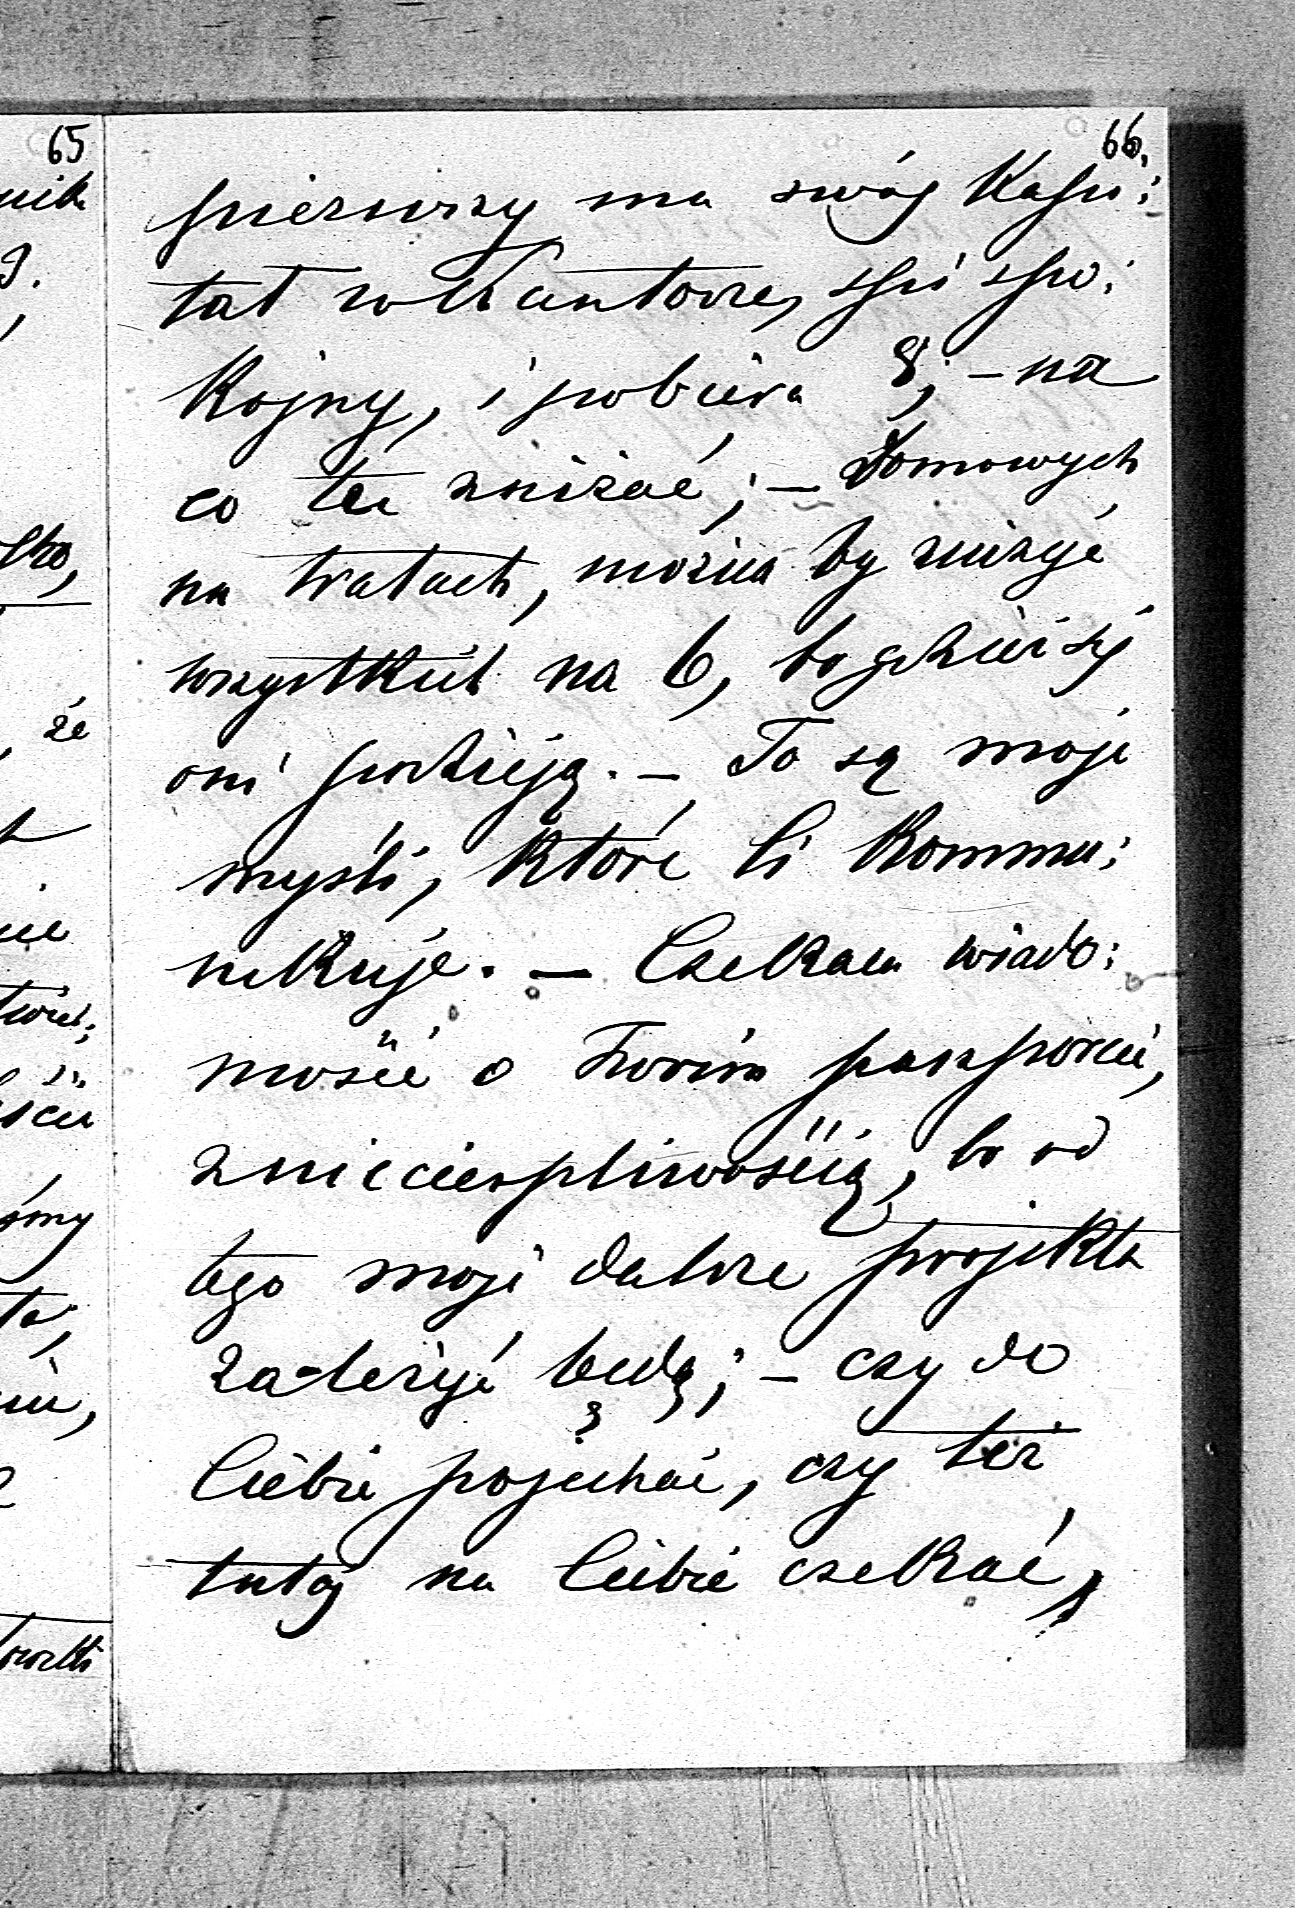 65
66.
pierwszy ma swój Kapi:
tał w Kantorze, śpi spo:
Kojny, i pobiera 8; – na
co tu zniżać; – domowych
na tratach, można by zniżyć
wszystkich na 6, bo gdzież się
oni podzieją. – To są moje
myśli, które Ci Kommu:
nikuję. – Czekam wiado:
mości o Twoim paszporcie,
z niecierpliwością, bo od
tego moje dalsze projekta
zależyć będą; – czy do
Ciebie pojechać, czy też
tutaj na Ciebie czekać,